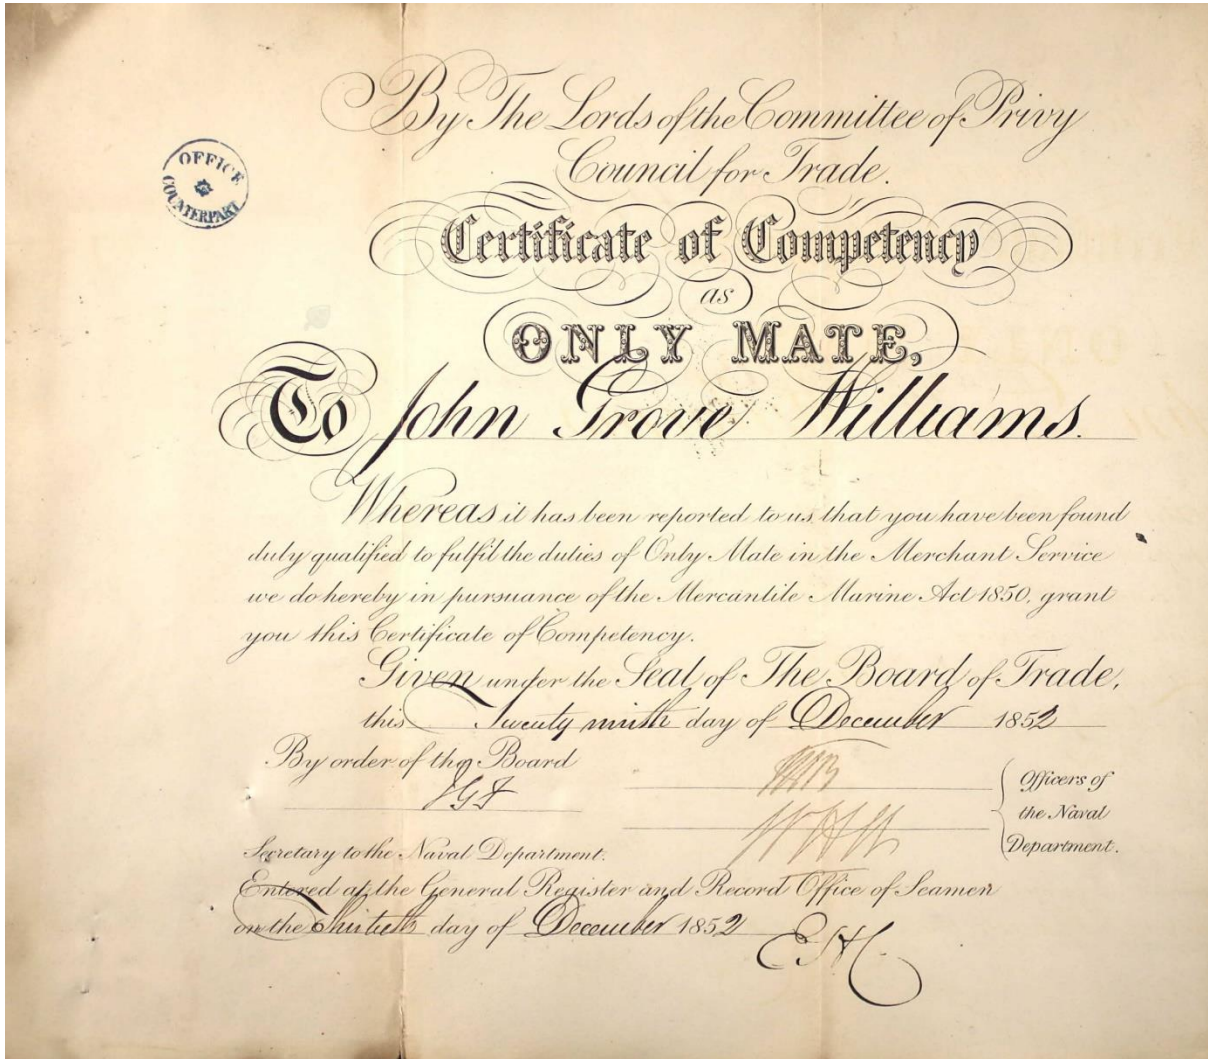 By The Lords of the Committee of Privy
Council for Trade.
OFFICE
COUNTERPART
Certificate of Competency
as
ONLY MATE,
To John Grove Williams.
Whereas it has been reported to us that you have been found
duly qualified to fulfil the duties of Only Mate in the Merchant Service
we do hereby in pursuance of the Mercantile Marine Act 1850, grant
you this Certificate of Competency.
Given under the Seal of The Board of Trade,
this Twenty ninth day of December 1852
By order of the Board
Officers of
the Naval
Department.
Secretary to the Naval Department.
Entered at the General Register and Record Office of Seamen
on the Thirtieth day of December 1852